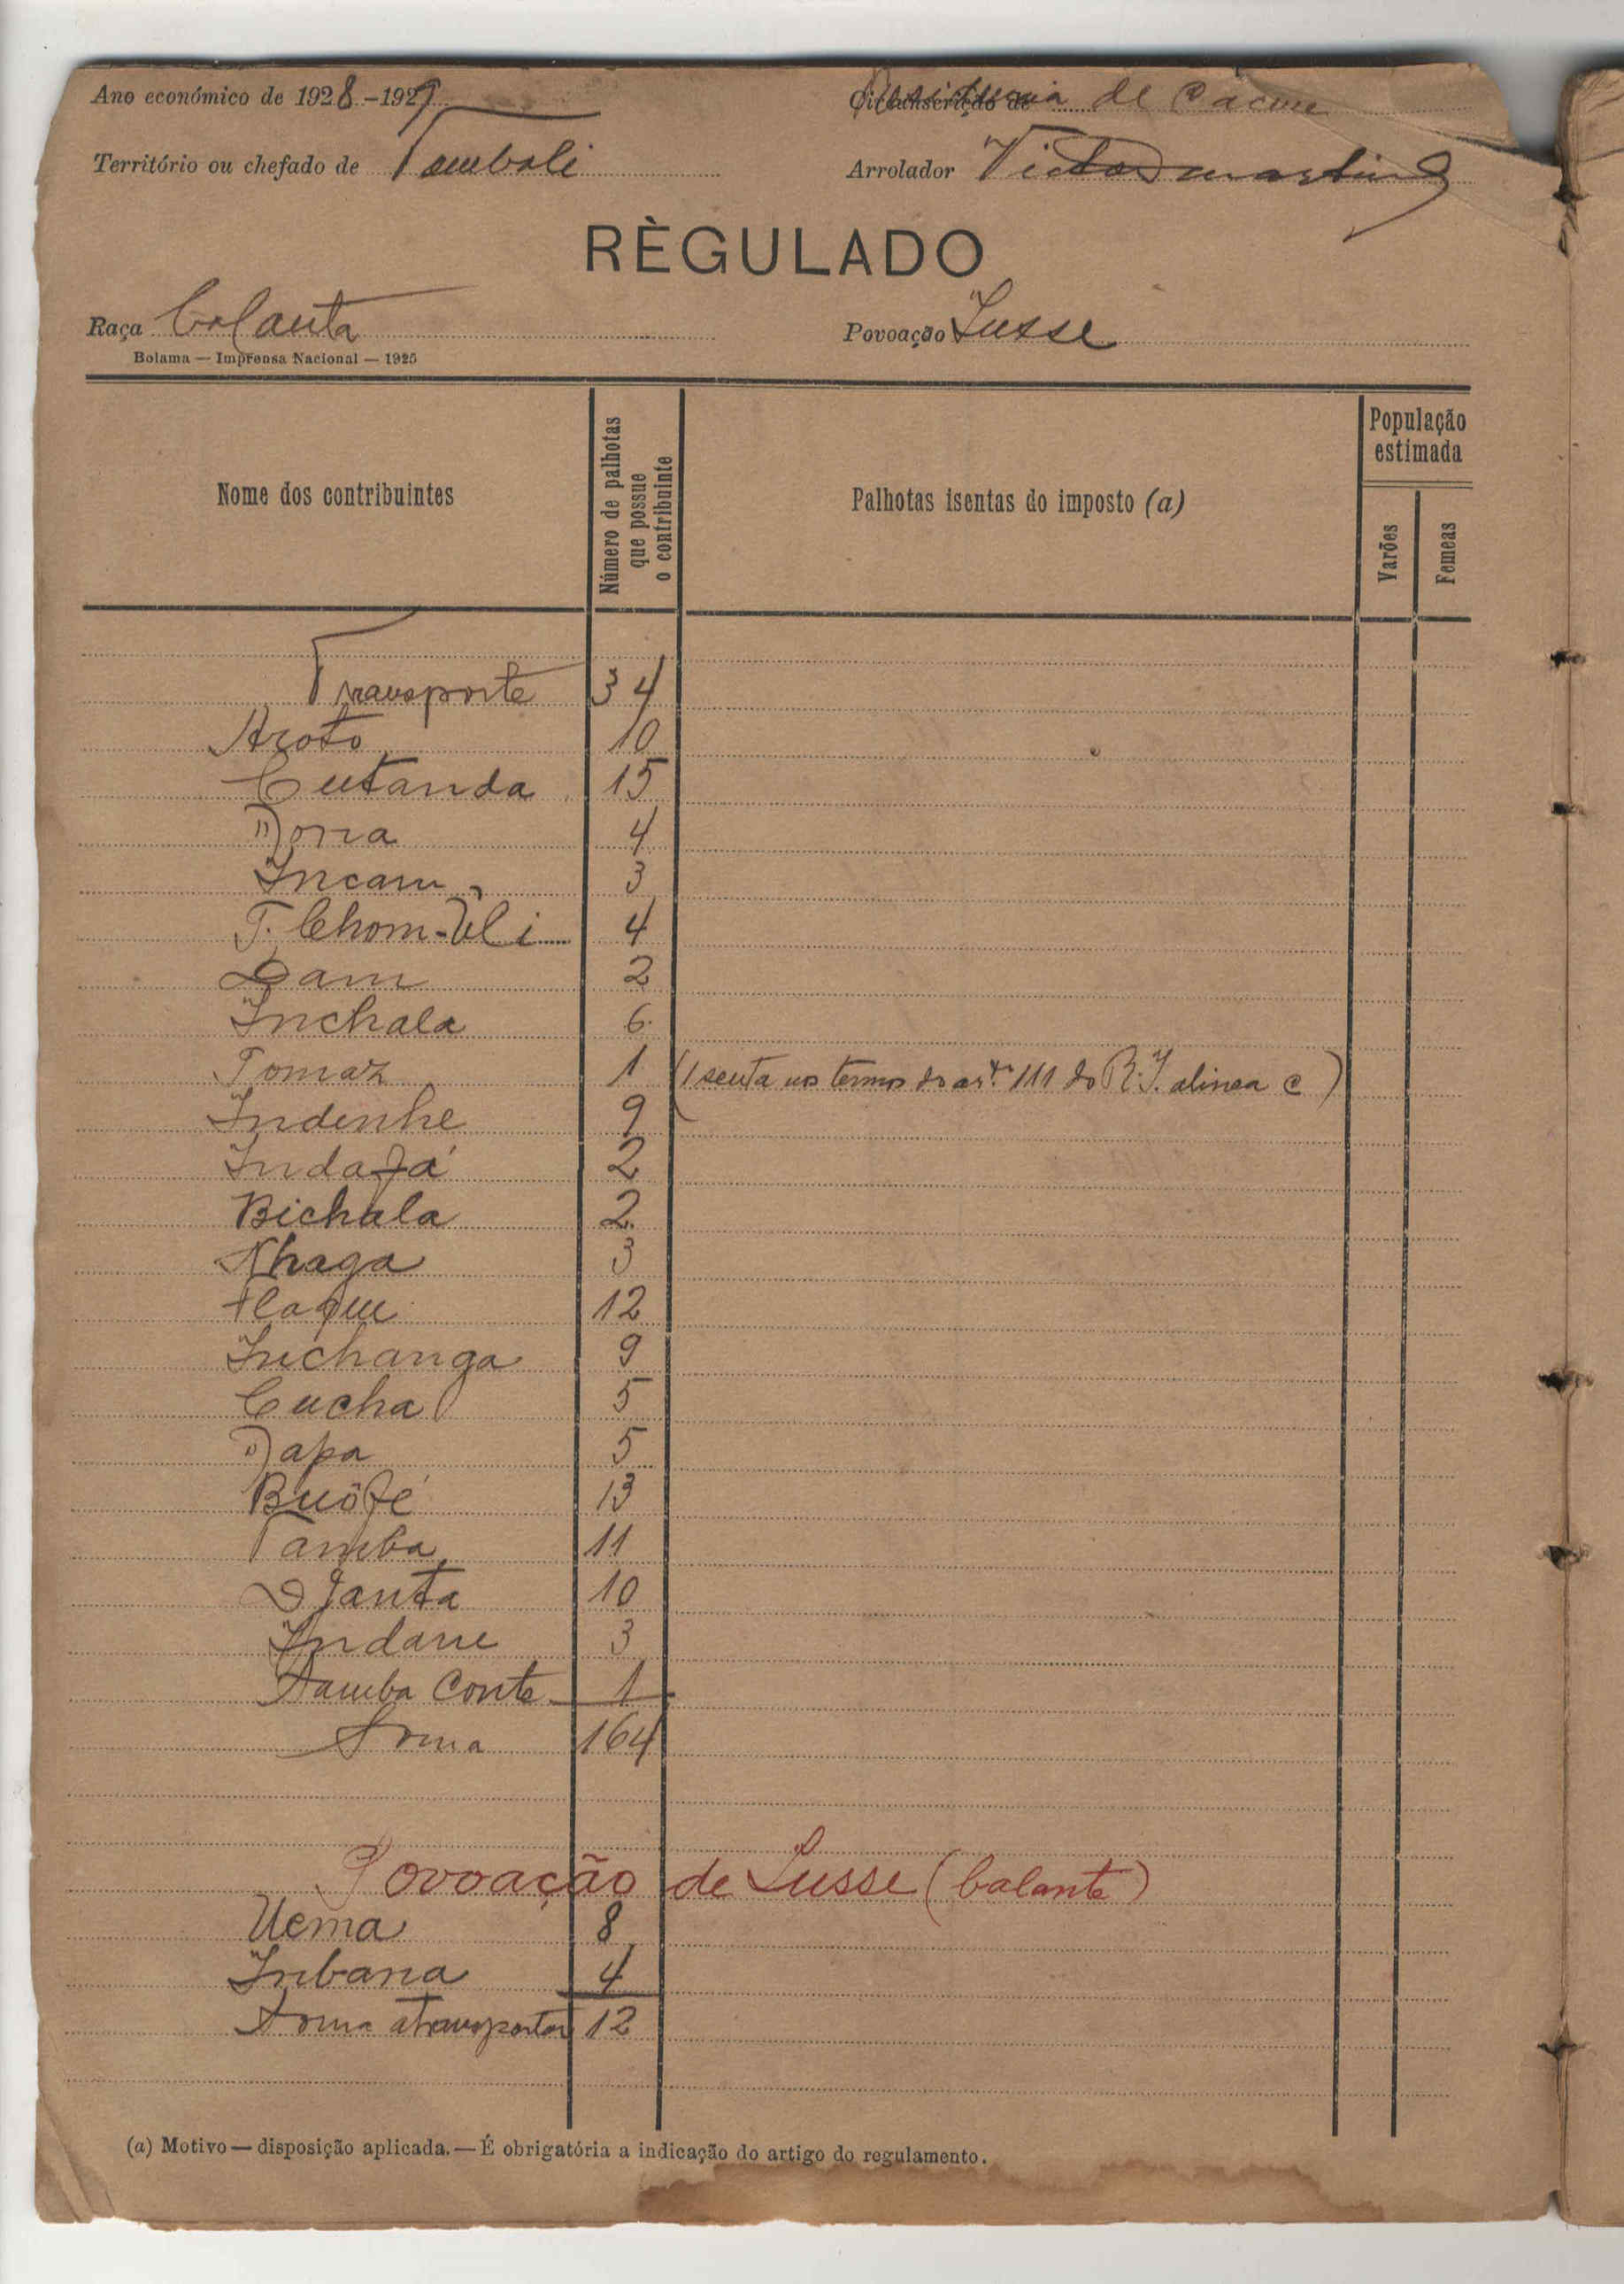 Ano económico de 1928-1929
Residencia de Cacine
Território ou chefado de Tombali
Arrolador Victor Martins
RÈGULADO
Raça balanta
Povoação Lusse
Bolama — Imprensa Nacional — 1925
Nome dos contribuintes
Número de palhotas que possue o contribuinte
Palhotas isentas do imposto (a)
População estimada
Varões
Femeas
Transporte 34
Aroto 10
Cutanda 15
Dona 4
Incam 3
T. Chom-Uli 4
Dam 2
Inchala 6
Tomaz 1 (Isenta nos termos do artº 111 do R.I. alinea c)
Indenhe 9
Indafá 2
Bichala 2
Nhaga 3
12
Inchanga 9
Cucha 5
Dapa 5
Buôfé 13
Tamba 11
Djanta 10
Indane 3
Samba Conte 1
Soma 164
Povoação de Lusse (balante)
Uema 8
Inbana 4
Soma a transportar 12
(a) Motivo — disposição aplicada. — É obrigatória a indicação do artigo do regulamento.